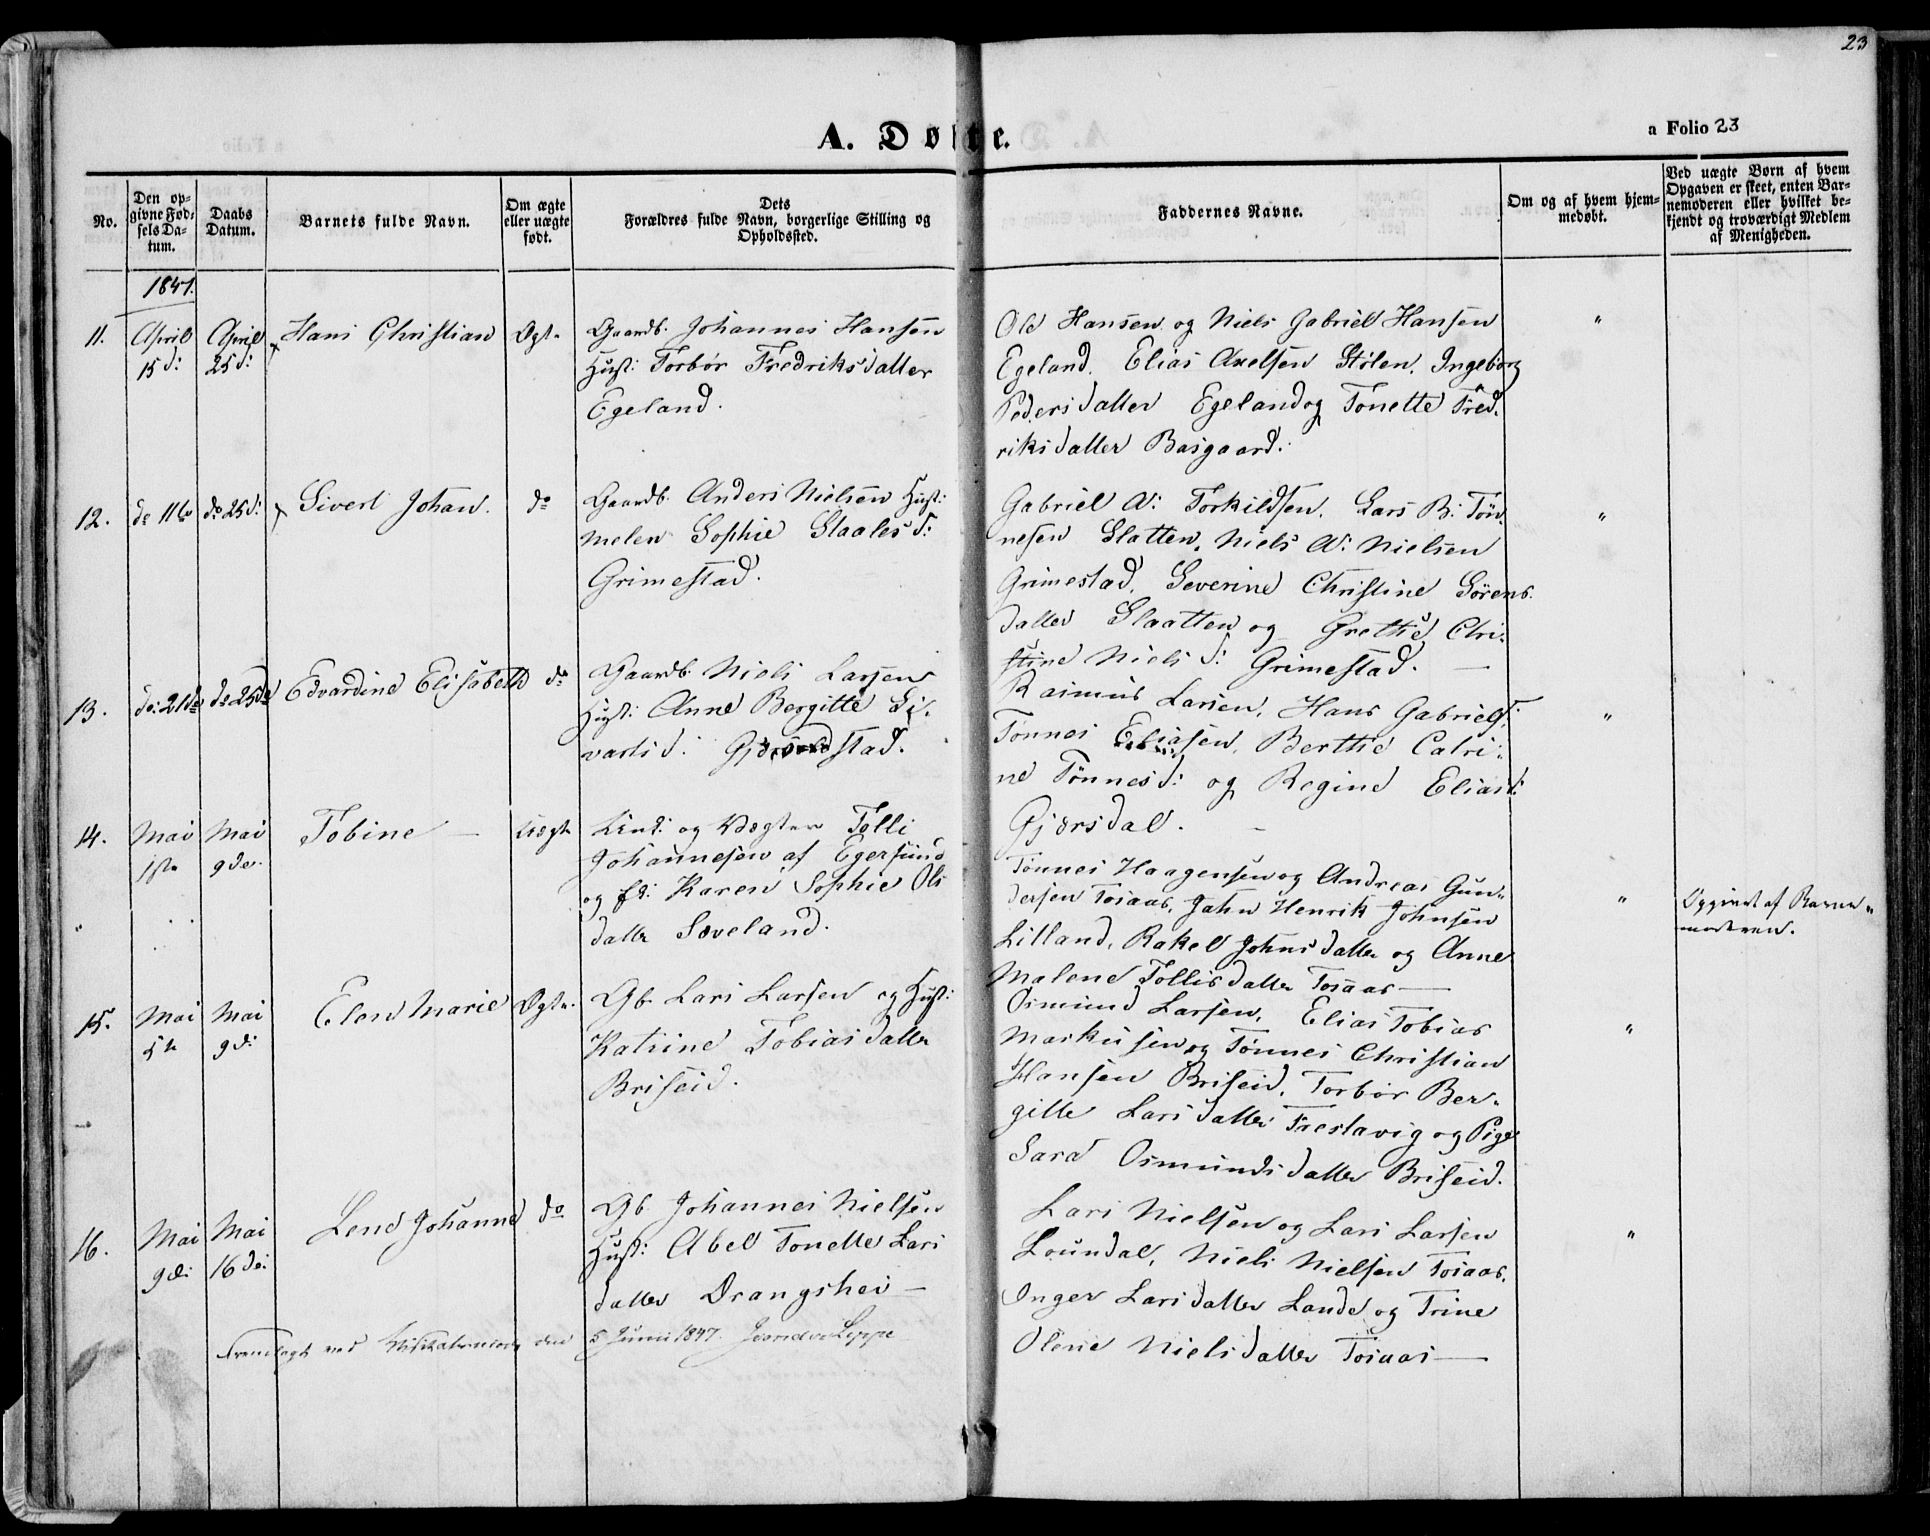 23
A. Døbte.
a Folio 23
No.
Den op-
givne Fød-
sels Da-
tum.
Daabs
Datum.
Barnets fulde Navn.
Om ægte
eller uægte
født.
Dets
Forældres fulde Navn, borgerlige Stilling og
Opholdssted.
Faddernes Navne.
Om og af hvem hjem-
medøbt.
Ved uægte Børn af hvem
Opgaven er skeet, enten Bar-
nemoderen eller hvilket be-
kjendt og troværdigt Medlem
af Menigheden.
1847.
11.
April
15 d:
April
25 d:
Hans Christian
Ægt.
Gaardb. Johannes Hansen
Hust: Torbør Fredriksdatter
Egeland.
Ole Hansen og Niels Gabriel Hansen
Egeland. Elias Axelsen Stølen. Ingeborg
Pedersdatter Egeland og Tonette Fred-
riksdatter Basgaard.
"
12.
do 11te
do 25 d:
Sivert Johan.
do
Gaardb. Anders Nielsen Hust:
Melen Sophie Staalesd:
Grimestad.
Gabriel A: Torkildsen. Lars B: Tøn-
nesen Slatten, Niels A: Nielsen
Grimestad. Severine Christine Sørens
datter Slaatten og Grethe Chri-
stine Nielsd: Grimestad. —
"
13.
do: 21de
do 25de
Edvardine Elisabeth
do
Gaardb. Niels Larsen
Hust: Anne Bergitte Si-
vartsd: stad.
Rasmus Larsen, Hans Gabriels:
Tønnes Eliasen, Berthe Catri-
ne Tønnesd: og Regine Eliasd:
Gjersdal.
"
14.
Mai
1ste
Mai
9de
Tobine —
Uægte
Und: og Tolli
Johannesen af Egersund
og fr: Karen Sophie Ols
datter Sæveland.
Tønnes Haagensen og Andreas Gun-
dersen Tosaas, Jahn Henrik Johnsen
Lilland, Rakel Johnsdatter og Anne
Malene Tollisdatter Tosaas —
"
Opgivet af Barne-
moderen.
15.
Mai
5te
Mai
9 d:
Elen Marie
Ægte.
Gb. Lars Larsen og Hust:
Katrine Tobiasdatter
Briseid.
Osmund Larsen, Elias Tobias
Markusen og Tønnes Christian
Hansen Briseid, Torbør Ber-
gitte Larsdatter Frestavig og Pige
Sara Osmundsdatter Briseid.
"
16.
Mai
9 d:
Mai
16de:
Lene Johanne
do
Gb. Johannes Nielsen
Hust: Abel Tonette Lars
datter Drangshei —
Lars Nielsen og Lars Larsen
Loundal, Niels Nielsen Tosaas.
Inger Larsdatter Lande og Trine
Olene Nielsdatter Tosaas —
"
Fremlagt ved den 5 Junii 1847.